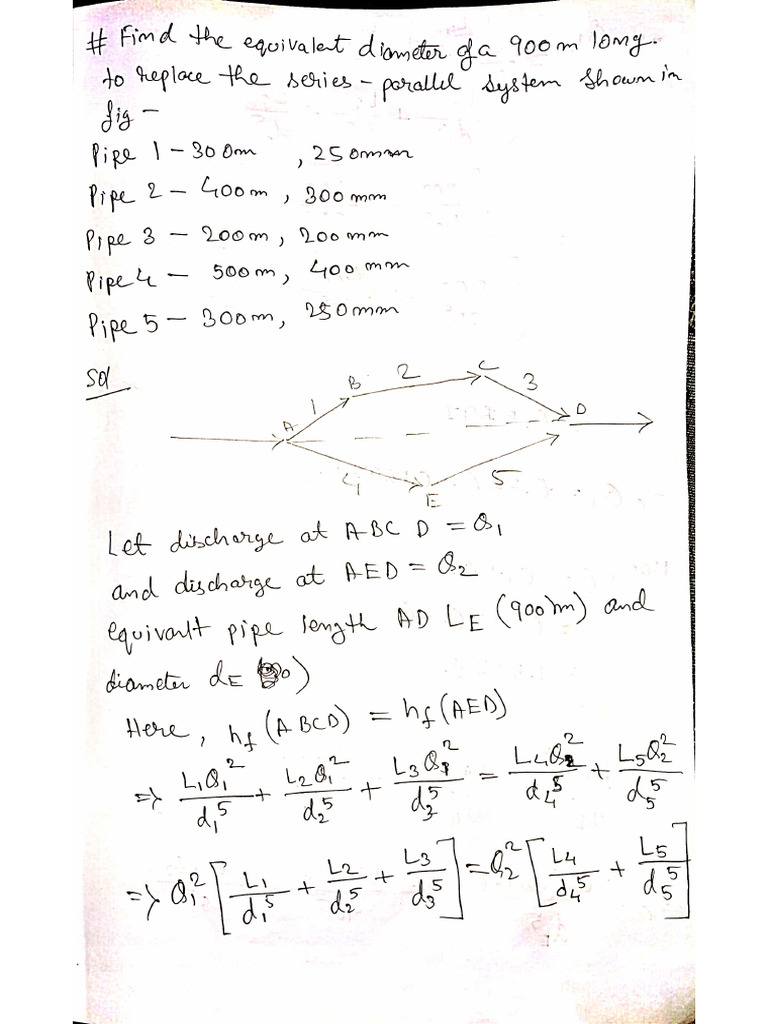 # Find the equivalent diameter of a 900m long.
to replace the series - parallel system shown in
fig -
Pipe 1 - 300m , 250mm
Pipe 2 - 400m , 300mm
Pipe 3 - 200m, 200mm
Pipe 4 - 500m, 400mm
Pipe 5 - 300m, 250mm
Sol
A 1 B 2 C 3 D
4 E 5
Let discharge at ABC D = Q₁
and discharge at AED = Q₂
equivalt pipe length AD L_E (900)m) and
diameter d_E )
Here, h_f (ABCD) = h_f (AED)
=> L₁Q₁²/d₁⁵ + L₂Q₁²/d₂⁵ + L₃Q₁²/d₃⁵ = L₄Q₂²/d₄⁵ + L₅Q₂²/d₅⁵
=> Q₁² [L₁/d₁⁵ + L₂/d₂⁵ + L₃/d₃⁵] = Q₂² [L₄/d₄⁵ + L₅/d₅⁵]